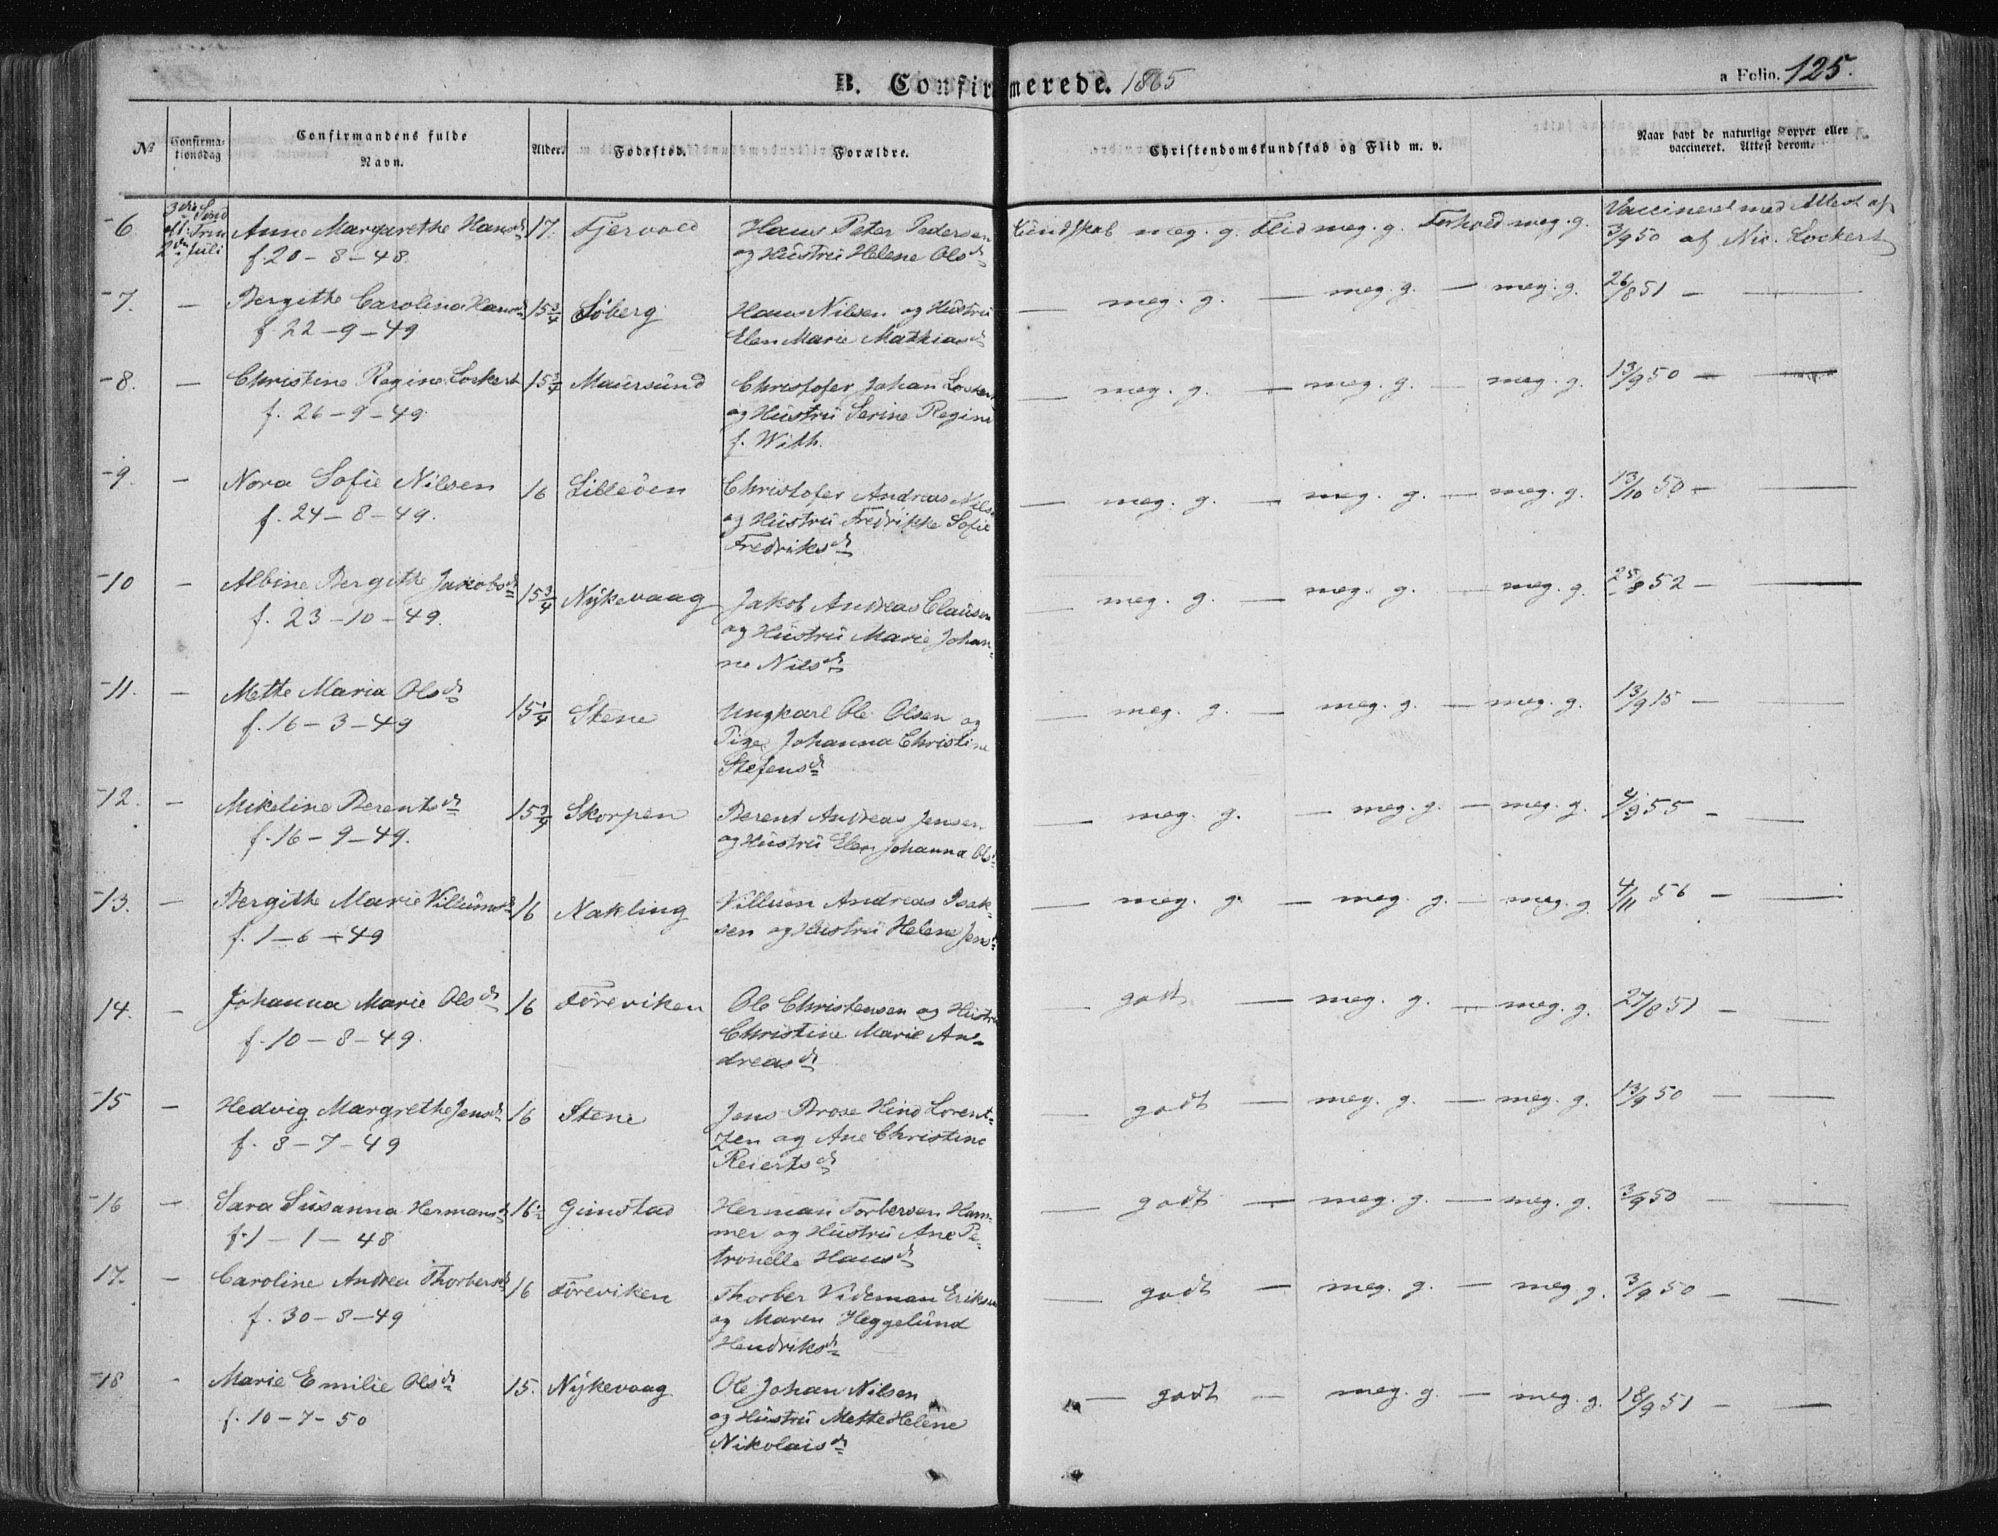 B. Confirmerede. 1865
a Folio. 125.
No
Confirmationsdag
Confirmandens fulde Navn.
Alder.
Fødested.
Forældre.
Christendomskundskab og Flid m. v.
Naar havt de naturlige Kopper eller vaccineret. Attest derom.
6 3die Sønd Anne Margarethe Hansd 17. Fjervold Hans Peter Pedersen Kundskab meg. g. Flid meg. g. Forhold meg. g. Vaccineret med Attest af
eft. Trin 2den Juli f. 20-8-48 og Hustru Helene Olsd 3/9 50 af Nic. Lockert
7. — Bergithe Carolina Hansd 15 3/4 Søberg Hans Nilsen og Hustru — meg. g. — meg. g. — meg. g. 26/8 51 — —
f. 22-9-49 Elen Marie Mathiasd
8. — Christine Regine Lockert 15 3/4 Maursund Christofer Johan Lockert — meg. g. — meg. g. — meg. g. 13/9 50 — —
f. 26-9-49. og Hustru Serine Regine
f. With.
9. — Nora Sofie Nilsen 16 Lilleøen Christofer Andreas Nils — meg. g. — meg. g. — meg. g. 13/10 50 — —
f. 24-8-49. og Hustru Fredrikke Sofie
Fredriksd
10 — Albine Bergithe Jakobsd 15 3/4 Nykevaag Jakob Andreas Clausen — meg. g. — meg. g. — meg. g. 25/8 52 — —
f. 23-10-49. og Hustru Marie Johan-
ne Nilsd
11. — Mette Maria Olsd 15 1/4 Stene Ungkarl Ole Olsen og — meg. g. — meg. g. — meg. g. 13/9 15 — —
f. 16-3-49 Pige Johanna Christine
Stefensd
12. — Mikeline Berentsd 15 3/4 Skorpen Berent Andreas Jensen — meg. g. — meg. g. — meg. g. 4/9 55 — —
f. 16-9-49. og Hustru Elen Johanna Ols
13. — Bergithe Marie Villumsd 16 Nakling Villum Andreas Isak- — meg. g. — meg. g. — meg. g. 4/11 56 — —
f. 1-6-49 sen og Hustru Helene Jens
14. — Johanna Marie Olsd 16 Føreviken Ole Christensen og Hustru — godt — meg. g. — meg. g. 27/8 51 — —
f. 10-8-49. Christine Marie An-
dreasd
15 — Hedvig Margrethe Jensd 16 Stene Jens Brose Hind Lorent- — godt — meg. g. — meg. g. 13/9 50 — —
f. 8-7-49 zen og Ane Christine
Reiertsd
16 — Sara Susanna Hermansd 16 Gimstad Herman Torbersen Ham- — godt — meg. g. — meg. g. 3/9 50 — —
f. 1-1-48 mer og Hustru Ane Pe-
tronelle Hansd
17. — Caroline Andrea Thorbersd 16 Føreviken Thorber Videman Eriksen — godt — meg. g. — meg. g. 3/9 50 — —
f. 30-8-49 og Maren Heggelund
Hendriksd
18 — Marie Emilie Olsd 15. Nykevaag Ole Johan Nilsen — godt — meg. g. — meg. g. 18/9 51 — —
f. 10-7-50 og Hustru Mette Helene
Nikolaisd